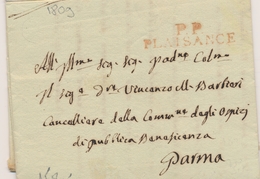 1809
P.P.
PLAISANCE
All' Illmo Sigr Sigr Padne Colmo
Il Sigr Dr Vincenzo Barbieri
Cancelliere della Commne degli Ospizj
di pubblica Beneficenza
Parma